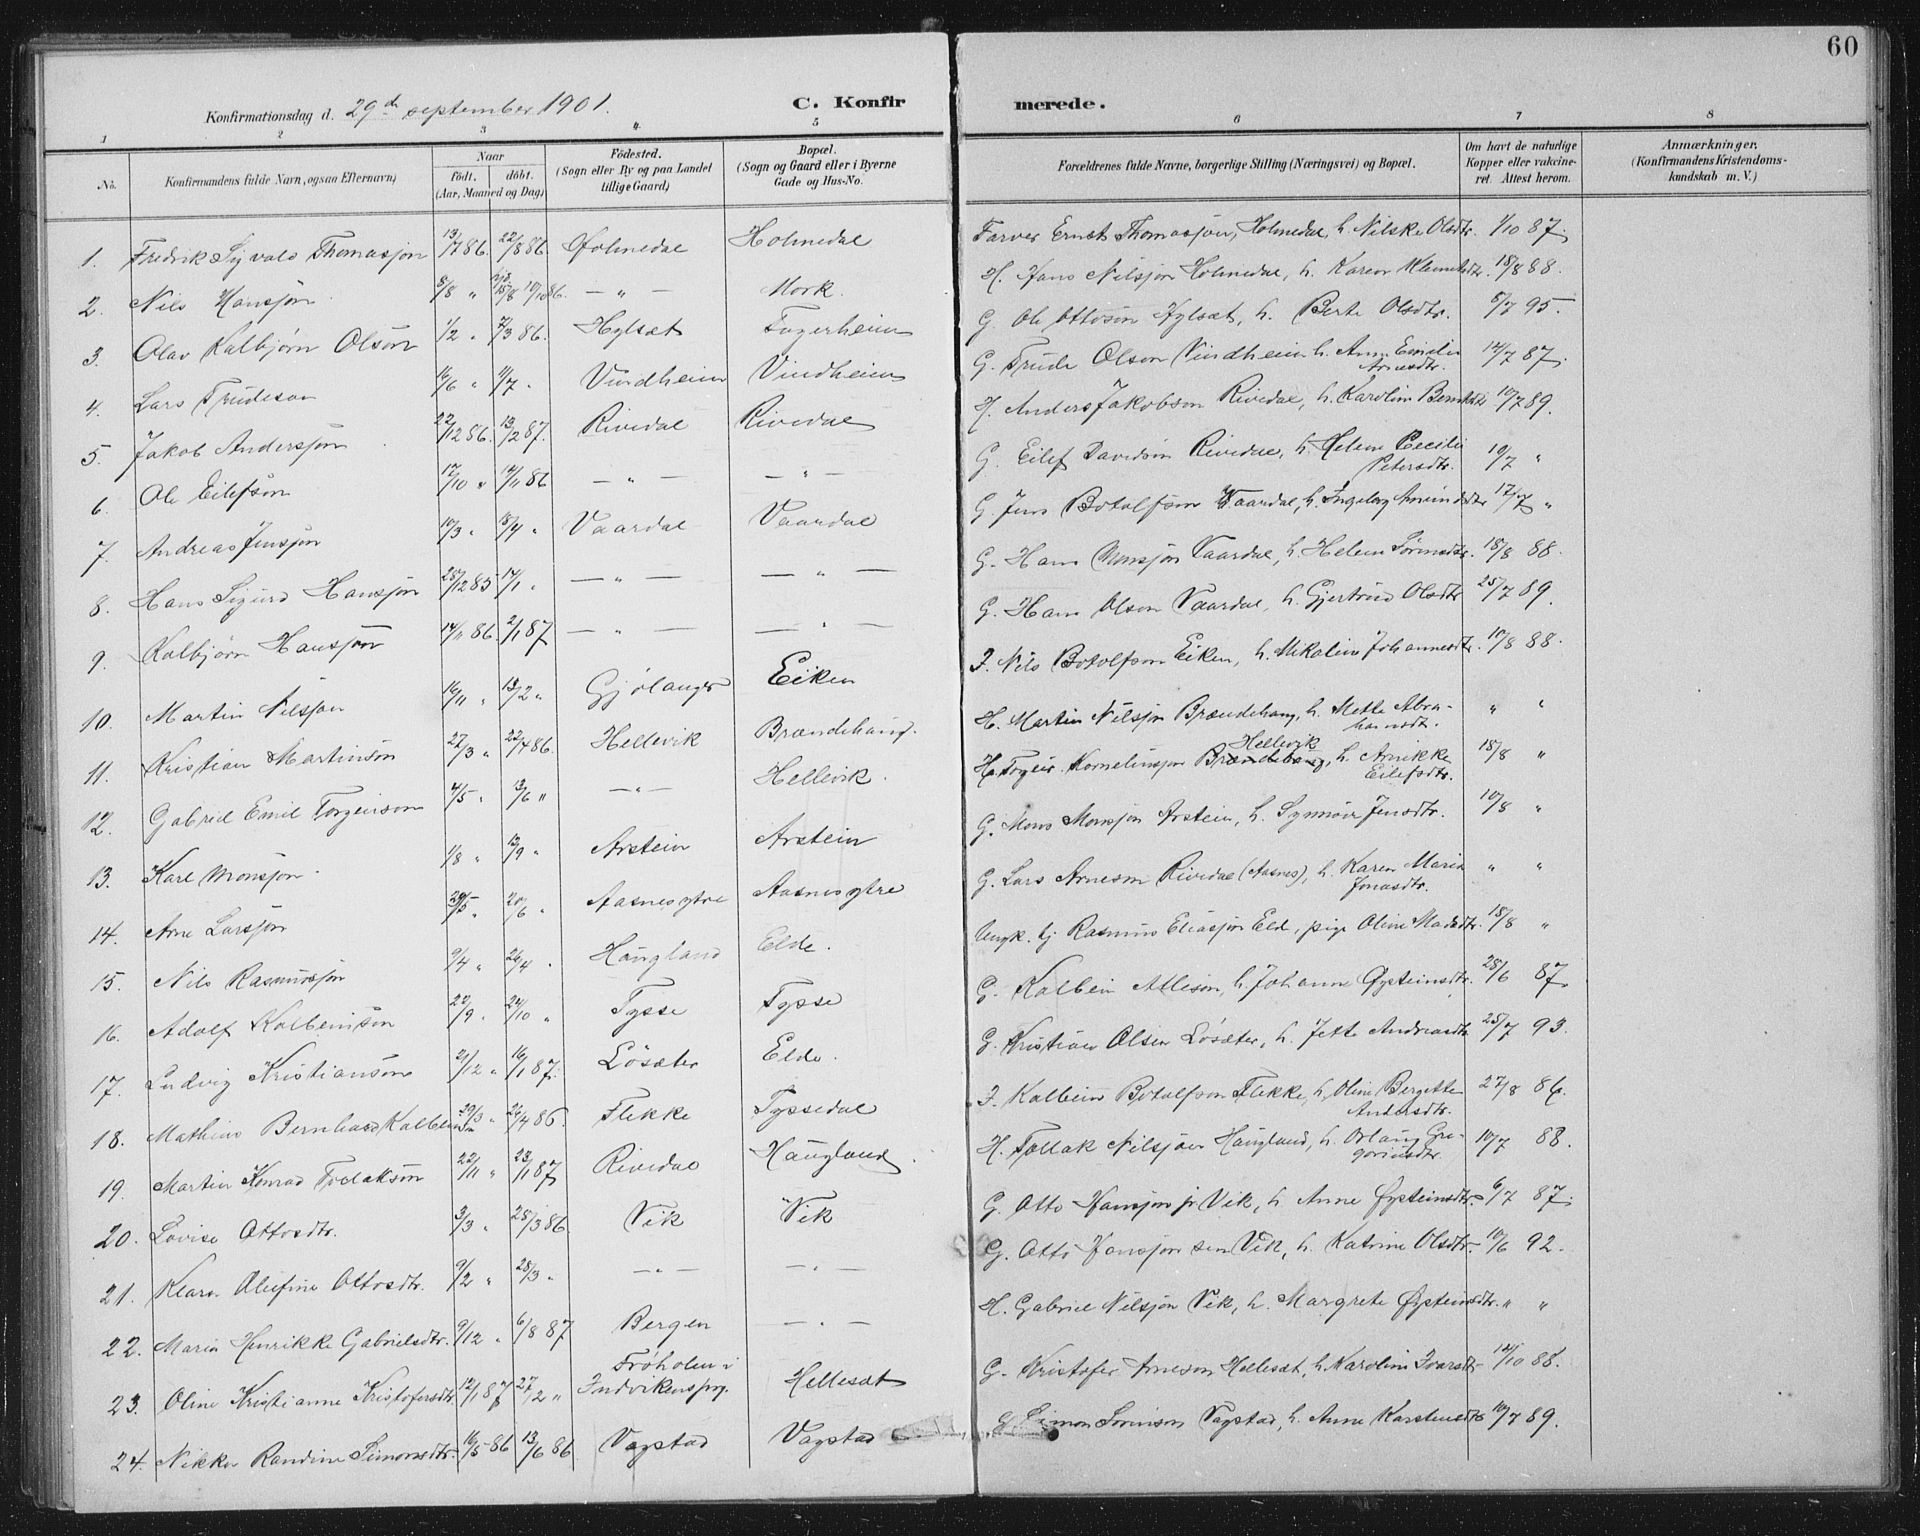 60
Konfirmationsdag d. 29de september 1901.
C. Konfirmerede.
1 2 3 4 5 6 7 8
No. Konfirmandens fulde Navn, ogsaa Efternavn)
Naar
Födt. döbt.
(Aar, Maaned og Dag)
Födested.
(Sogn eller By og paa Landet
tillige Gaard)
Bopæl.
(Sogn og Gaard eller i Byerne
Gade og Hus-No.
Forældrenes fulde Navne, borgerlige Stilling (Næringsvei) og Bopæl.
Om havt de naturlige
Kopper eller vakcine-
ret. Attest herom.
Anmærkninger,
(Konfirmandens Kristendoms-
kundskab m. V.)
1. Fredrik Sigvald Thomasson 13/7 86. 22/8 86. Holmedal Holmedal Farver Ernst Thomasson, Holmedal, h. Nilske Olsdtr. 1/10 87.
2. Nils Hansson 8/8 " 15/8 10/10 86. — " — Mork. H. Hans Nilsson Holmedal, h. Karen 18/8 88.
3. Olav Kolbjørn Olson 1/2 " 7/3 86. Hylsæt Fagerheim G. Ole Ottoson Hylsæt, h. Berte Olsdtr. 5/7 95.
4. Lars Trudeson 16/6 " 11/7 " Vindheim Vindheim G. Trude Olson Vindheim h. Anne Emilie Arnesdtr. 14/7 87.
5. Jakob Andersson 22/12 86. 13/2 87. Rivedal Rivedal H. Anders Jakobson Rivedal, h. Karoline 10/7 89.
6. Ole Eilefson 17/10 " 14/11 86 — " — — " — G. Eilef Davidson Rivedal, h. Helene Cecilie Petersdtr. 10/7 "
7. Andreas Jensson 10/3 " 18/4 " Vaardal Vaardal G. Jens Botolfson Vaardal, h. Ingeborg Amundsdtr 17/7 "
8. Hans Sigurd Hansson 25/12 85 17/1 " — " — — " — G. Hans Monsson Vaardal, h. Helene Sørensdtr. 18/8 88.
9. Kolbjørn Hansson 14/11 86. 2/1 87 — " — — " — G. Hans Olson Vaardal, h. Gjertrud Olsdtr 25/7 89.
10. Martin Nilsson 16/11 " 13/2 " Gjølanger Eiken I. Nils Botolfson Eiken, h. Mikoline Johannesdtr. 10/8 88.
11. Kristian Martinson 27/3 " 22/4 86. Hellevik Brændehaug. H. Martin Nilsson Brændehaug, h. Mette Abra-
hamsdtr. " "
12. Gabriel Emil Torgeirson 4/5 " 13/6 " — " — Hellevik. H. Torgeir Korneliusson Brændehaug Hellevik, h. Annikke
Eilefsdtr. 18/8 "
13. Karl Monsson 1/8 " 12/9 " Arstein Arstein G. Mons Monsson Arstein, h. Synnøve Jensdtr. 10/8 "
14. Arne Larsson 29/5 " 20/6 " Aasnesytre Aasnesytre G. Lars Arneson Rivedal (Aasnes), h. Karen Maria
Jonasdtr. " "
15. Nils Rasmusson 9/4 " 26/4 " Haugland Elde. Ungk. tj. Rasmus Eliasson Elde, pige Oline Madsdtr. 18/8 "
16. Adolf Kolbeinson 22/9 " 24/10 " Tysse Tysse G. Kolbein Atleson, h. Johanne Øysteinsdtr. 28/6 87
17. Ludvig Kristianson 21/12 " 16/1 87. Løsæter Elde. G. Kristian Olsen Løsæter, h. Jette Andreasdtr 25/7 93.
18. Mathias Bernhard Kolbeinson 29/3 " 26/4 86. Flekke Tyssedal I. Kolbein Botolfson Flekke, h. Oline Bergitte
Andersdtr. 27/8 86.
19. Martin Konrad Tollakson 22/11 " 23/1 87 Rivedal Haugland. H. Tollak Nilsson Haugland, h. Orlaug Gre-
goriusdtr. 10/7 88.
20. Lovise Ottosdtr. 3/3 " 28/3 86. Vik Vik G. Otto Hansson jr Vik, h. Anne Øysteinsdtr. 6/7 87.
21. Klara Olufine Ottosdtr. 9/2 " 28/3 " — " — — " — G. Otto Hansson sen Vik, h. Katrine Olsdtr. 10/6 92.
22. Maria Henrikke Gabrielsdtr. 9/12 " 6/8 87 Bergen — " — H. Gabriel Nilsson Vik, h. Margrete Øysteinsdtr. " "
23. Oline Kristianne Kristofersdtr 12/1 87 27/2 " Frøholm i
Indvikenspg. Hellesæt G. Kristofer Arneson Hellesæt, h. Karoline Ivarsdtr 12/10 88.
24. Nikka Randine Simonsdtr. 16/5 86 13/6 86 Vagstad Vagstad G. Simon Sørenson Vagstad, h. Anne Karstensdtr 10/7 89.